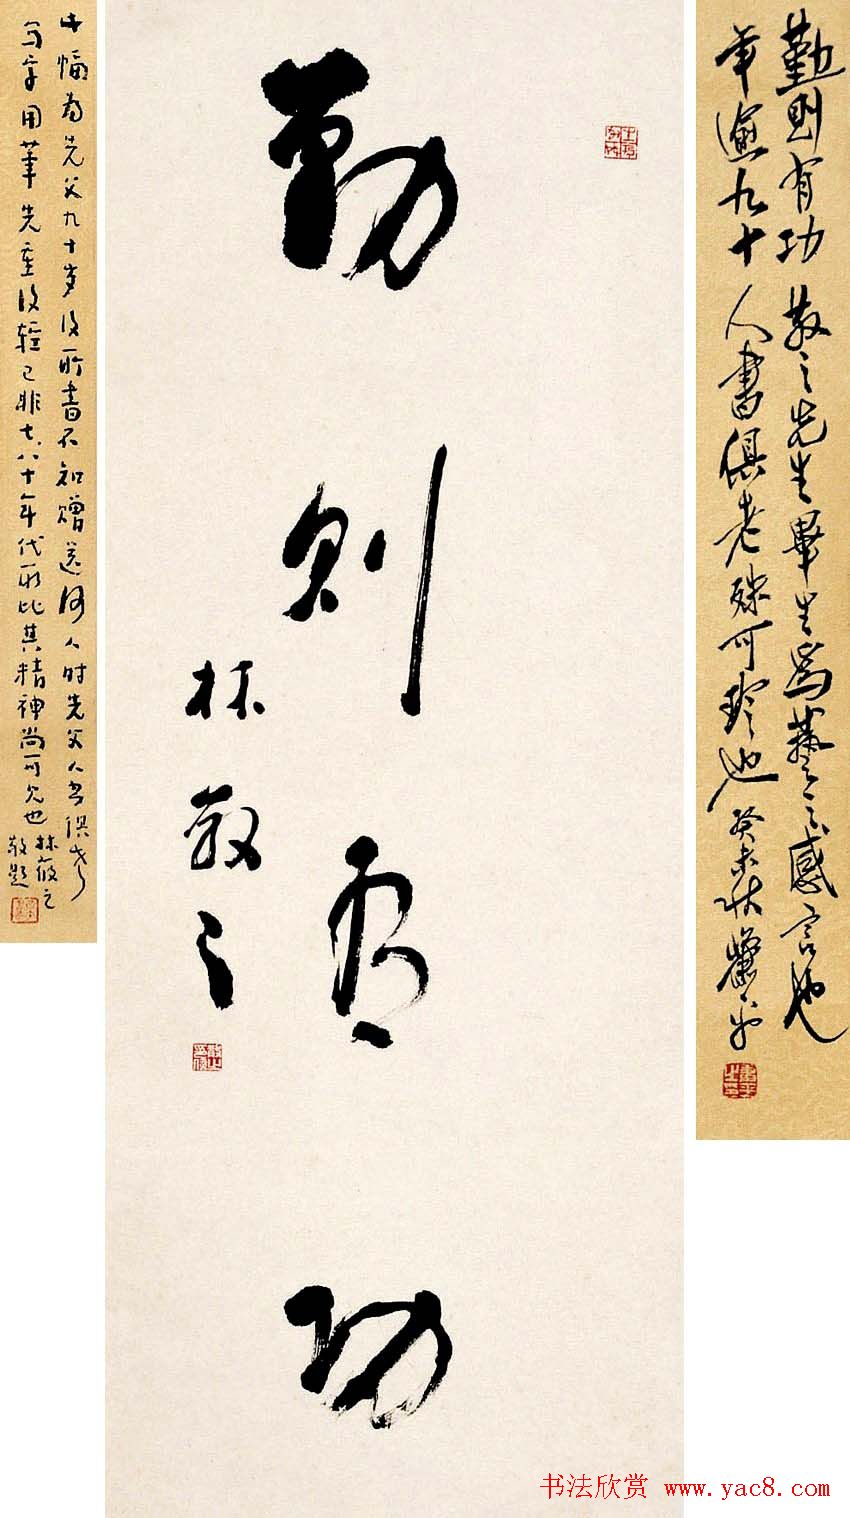 勤则有功 散之先生畢生为藝之感言也
年逾九十人書俱老殊可珍也 癸未秋
勤则有功
林散之
此幅为先父九十岁后所書不知赠送何人时先父人书俱老
写字用筆先重后轻已非七八十年代所比其精神尚可见也 林筱之
敬题
书法欣赏 www.yac8.com